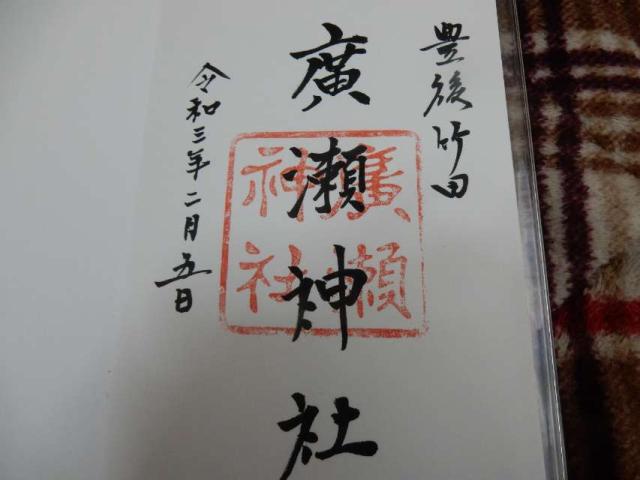 豊後竹田
廣瀬神社
廣瀬
神社
令和三年二月五日